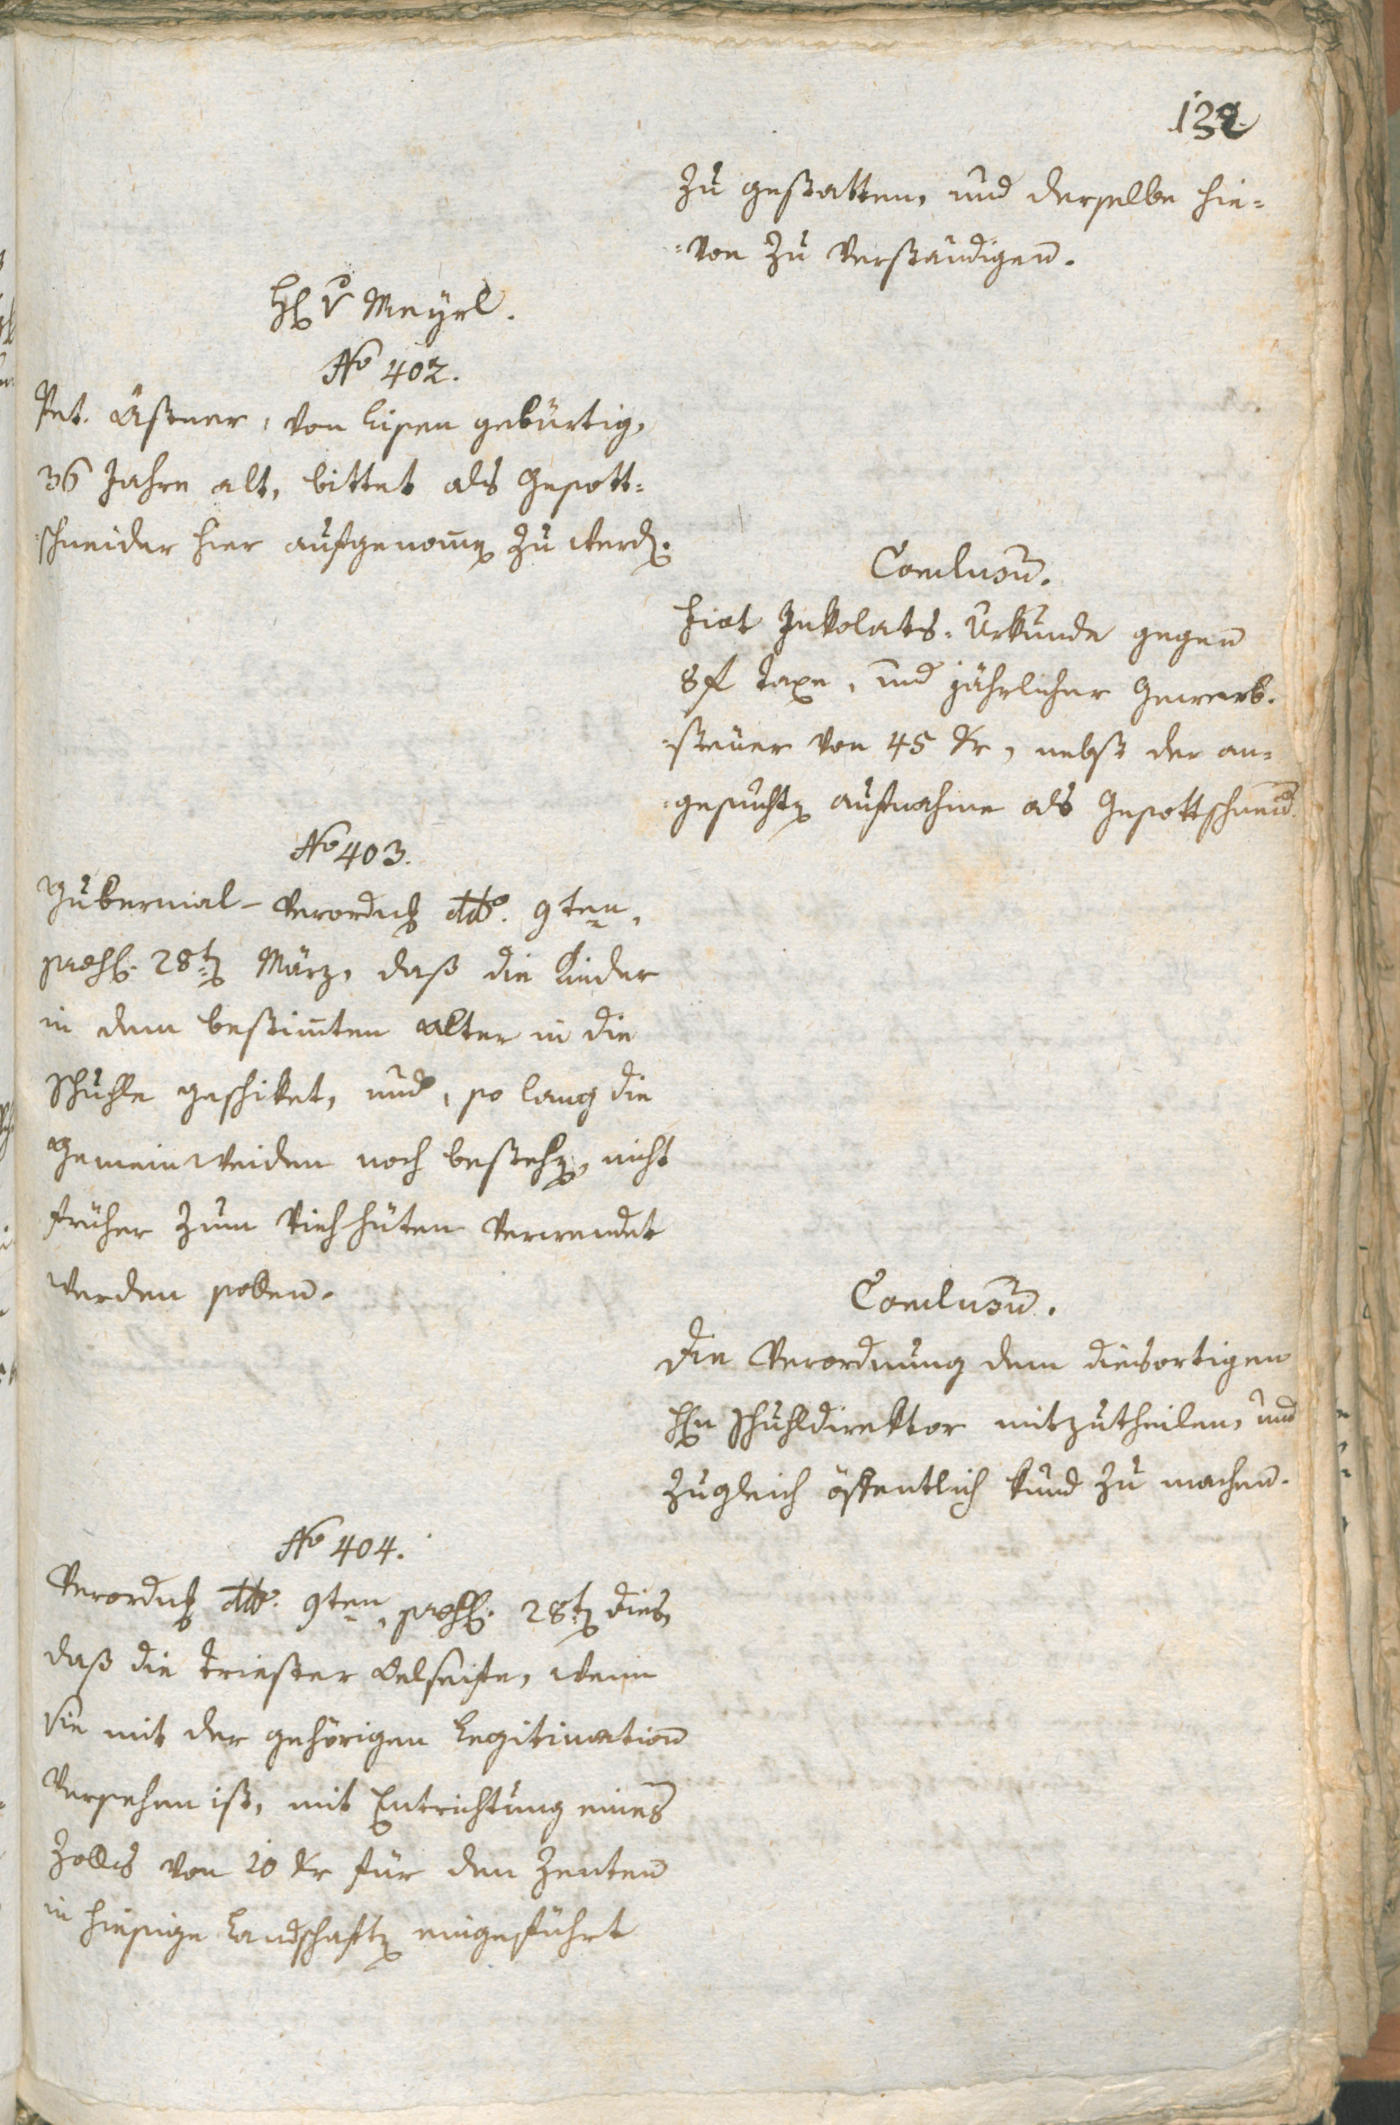 132
zu gestatten, und derselbe hie=
=von zu verständigen.
H v Meyrl.
No 402.
Pet. Aßner, von Lisen gebürtig,
36 Jahre alt, bittet als Gesott=
=schneider hier aufgenomen zu werden.
Conclusum.
Fiat Inkolats-Urkunde gegen
8 f Taxe, und jährlicher Gewerb=
=steuer von 45 Kr, nebst der an=
=gesuchten Aufnahme als Gesottschneid.
No 403.
Gubernial-Verordng ddo. 9ten,
praes. 28ten März, daß die Kinder
in dem bestimten Alter in die
Schuhle geschiket, und, so lang die
Gemeinweiden noch bestehen, nicht
früher zum Viehhüten verwendet
werden sollen.
Conclusum.
Die Verordnung dem diesortigen
Hn Schuhldirektor mitzutheilen, und
zugleich öffentlich kund zu machen.
No 404.
Verordng ddo. 9ten, praes. 28ten dies,
daß die Triester Oelseife, wenn
sie mit der gehörigen Legitimation
versehen ist, mit Entrichtung eines
Zolles von 20 Kr für den Zenten
in hiesige Landschaften eingeführt